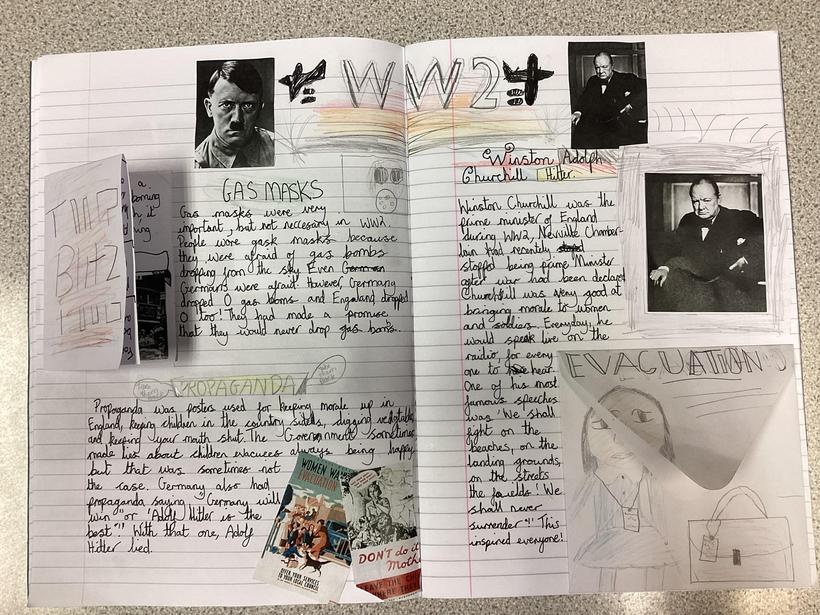 WW2
THE
BLITZ
GAS MASKS
Gas masks were very
important, but not neccesary in WW2.
People wore gask masks because
they were afraid of gas bombs
dropping from the sky. Even German
Germans were afraid. However, Germany
dropped 0 gas boms and England dropped
0 too! They had made a promise
that they would never drop gas boms.
PROPAGANDA
Propaganda was posters used for keeping morale up in
England, keeping children in the country sides, digging vedgtables
and keeping your mouth shut. The Government sometimes
made lies about children evacuees always being happy
but that was sometimes not
the case. Germany also had
propaganda saying "Germany will
win" or 'Adolf Hitler is the
best"! With that one, Adolf
Hitler lied.
WOMEN WA
EVACUATION
OFFER YOUR SERVICES
TO YOUR LOCAL COUNCIL
DON'T do it
Moth
LEAVE THE CH
WHERE THE
Winston Adolph
Churchill Hitler
Winston Churchill was the
prime minister of England
during WW2, Neiville Chamber-
lain had recently
stopped being prime Minister
after war had been declared
Churchill was very good at
bringing morale to women
and soldiers. Everyday, he
would speak live on the
radio, for every
one to hear.
One of his most
famous speeches
was 'We shall
fight on the
beaches, on the
landing grounds,
on the streets
the fouelds! We
shall never
surrender"! This
inspired everyone!
EVACUATION